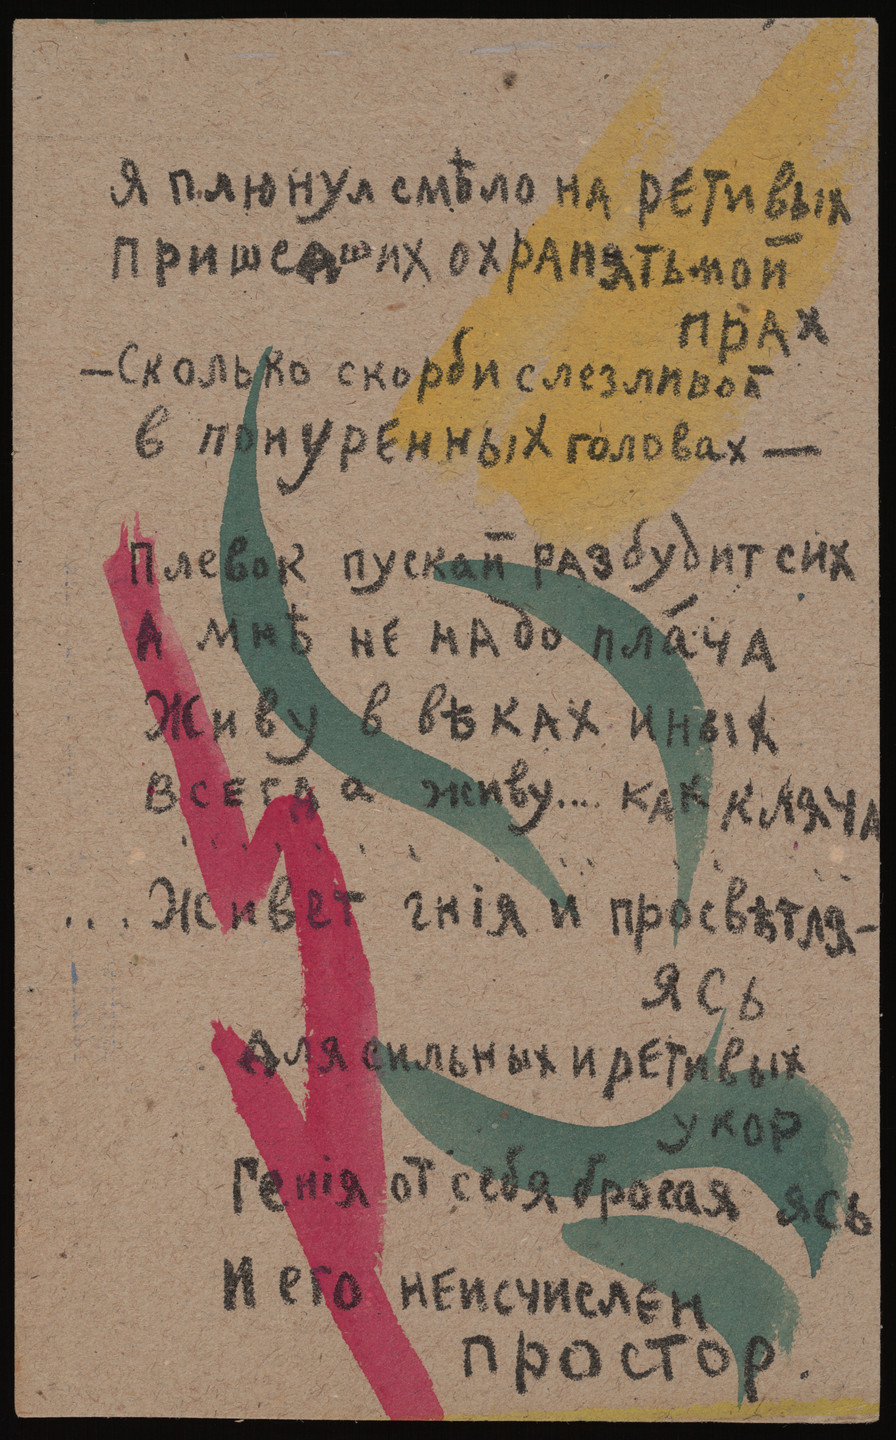 Я плюнул смѣло на ретивых
Пришедших охранять мой
прах
—Сколько скорби слезливой
в понуренных головах —
Плевок пускай разбудит сих
А мнѣ не надо пла́ча
Живу в вѣках иных
всегда живу... как кляча
... Живет гнія и просвѣтля-
ясь
Для сильных и ретивых
укор
Генія от себя бросая ясь
И его неисчислен
простор.